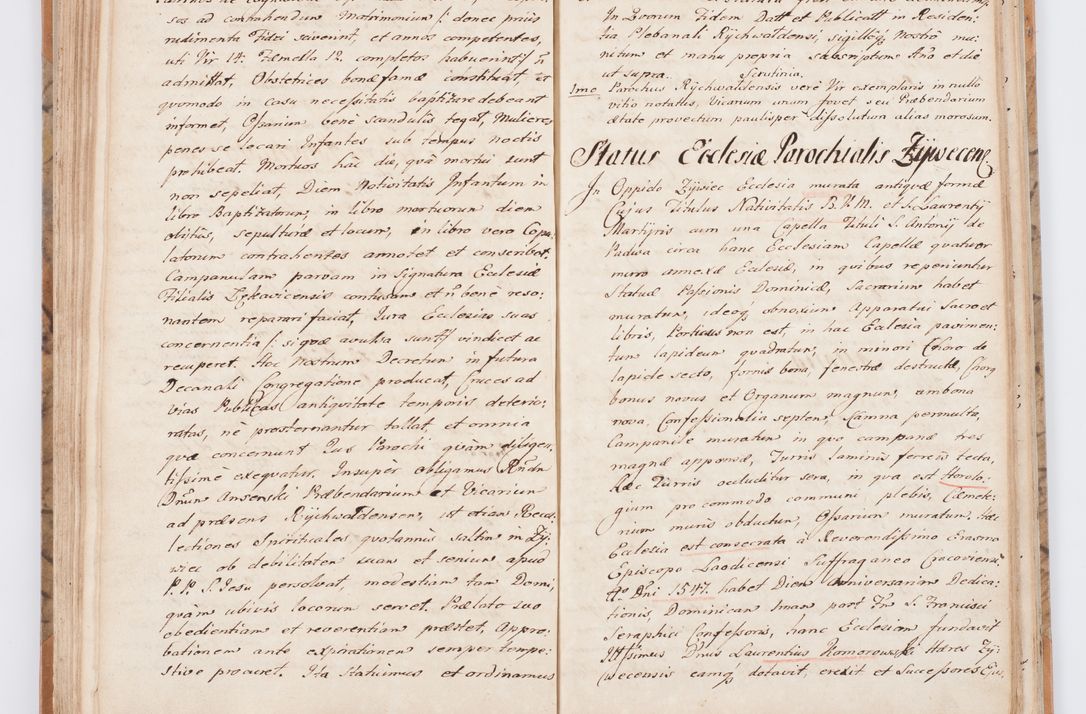 sos ad contrahendum Matrimonium /: donec prius
rudimenta Fidei sciverint, et annos competentes,
uti Vir 14. Fæmella 12. completos habuerint :/ n̄
admittat, Obstetrices bonæ famæ constituat, et
quomodo in casu necessitatis baptizare debeant
informet, Ossarium bene scandulis tegat, Mulieres
penes se locari Infantes sub tempus noctis
prohibeat. Mortuos hac die, qua mortui sunt
non sepeliat, Diem Nativitatis Infantum in
libro Baptizatorum, in libro mortuorum diem
obitus, sepulturæ et locum, in libro vero Copu,
latorum contrahentes annotet et conscribat.
Campanulam parvam in Signatura Ecclesiæ
Filialis Łękavicensis contusam et n̄ bene reso:
nantem reparari faciat, Jura Ecclesiæ suas
concernentia /: si quæ avulsa sunt :/ vindicet ac
recuperet. Hoc Nostrum Decretum in futura
Decanali Congregatione producat, Cruces ad
vias Publicas antiquitate temporis deterio:
ratas, ne prosternantur tollat et omnia
quæ concernunt Jus Parochi quam diligen,
tissime exequatur. Insuper obligamus Rndm
Dnum Ansenski Præbendarium et Vicarium
ad præsens Rÿchwaldensem, ut etiam Recol
lectiones Spirituales quotannis saltim in Zÿ:
wiec ob debilitatem suam et senium apud
P. P. S. Jesu persolvat, modestiam tam Domi,
quam ubivis locorum servet. Prælato suo
obedientiam et reverentiam præstet, Appro:
bationem ante expirationem semper tempe:
stive procuret. Ita Statuimus et ordinamus
In Quorum Fidem Datt et Publicatt in Residen:
tia Plebanali Rÿchwaldensi, sigilloq̃ Nostro mu:
nitum et manu propria subscriptum Año et die
ut supra. Scrutinia.
1mo Parochus Rÿchwaldensis vere Vir exemplaris in nullo
vitio notatus, Vicarium unum fovet seu Præbendarium
ætate provectum paulisper dissolutum alias morosum.
Status Ecclesiæ Parochialis Zÿwecen.
In Oppido Zÿwiec Ecclesia murata antiquæ formæ
Cujus Titulus Nativitatis B. V. M. et S. Laurentÿ
Martÿris cum una Capella Tituli S. Antonÿ de
Padua circa hanc Ecclesiam Capellæ quatuor
muro annexæ Ecclesiæ, in quibus reperiuntur
Statuæ Passionis Dominicæ, Sacrarium habet
muratum, ideoq̃ obnoxium Apparatui Sacro et
libris, Porticus non est, in hac Ecclesia pavimen:
tum lapideum quadratum, in minori Choro de
lapide secto, fornus bona, fenestræ destructæ, Chorq
bonus novus et Organum magnum, ambona
nova, Confessionalia septem, Scamna permulta,
Campanile muratum in quo campanæ tres
magnæ appensæ, Turris laminis ferreis tecta,
hæc Turris occluditur sera, in qua est Horolo:
gium pro commodo communi plebis, Cæmete:
rium muris obductum, Ossarium muratum. Hæc
Ecclesia est consecrata a Reverendissimo Erasmo
Episcopo Laodicensi Suffraganeo Cracoviensi
Aº Dni 1547. habet Diem Anniversariam Dedica:
tionis, Dominicam Imam post Fm S. Francisci
Seraphici Confessoris, hanc Ecclesiam fundavit
Illssimus Dnus Laurentius Komorowski Hæres Zÿ
wecensis eamq̃ dotavit, erexit et Successores Ejus,